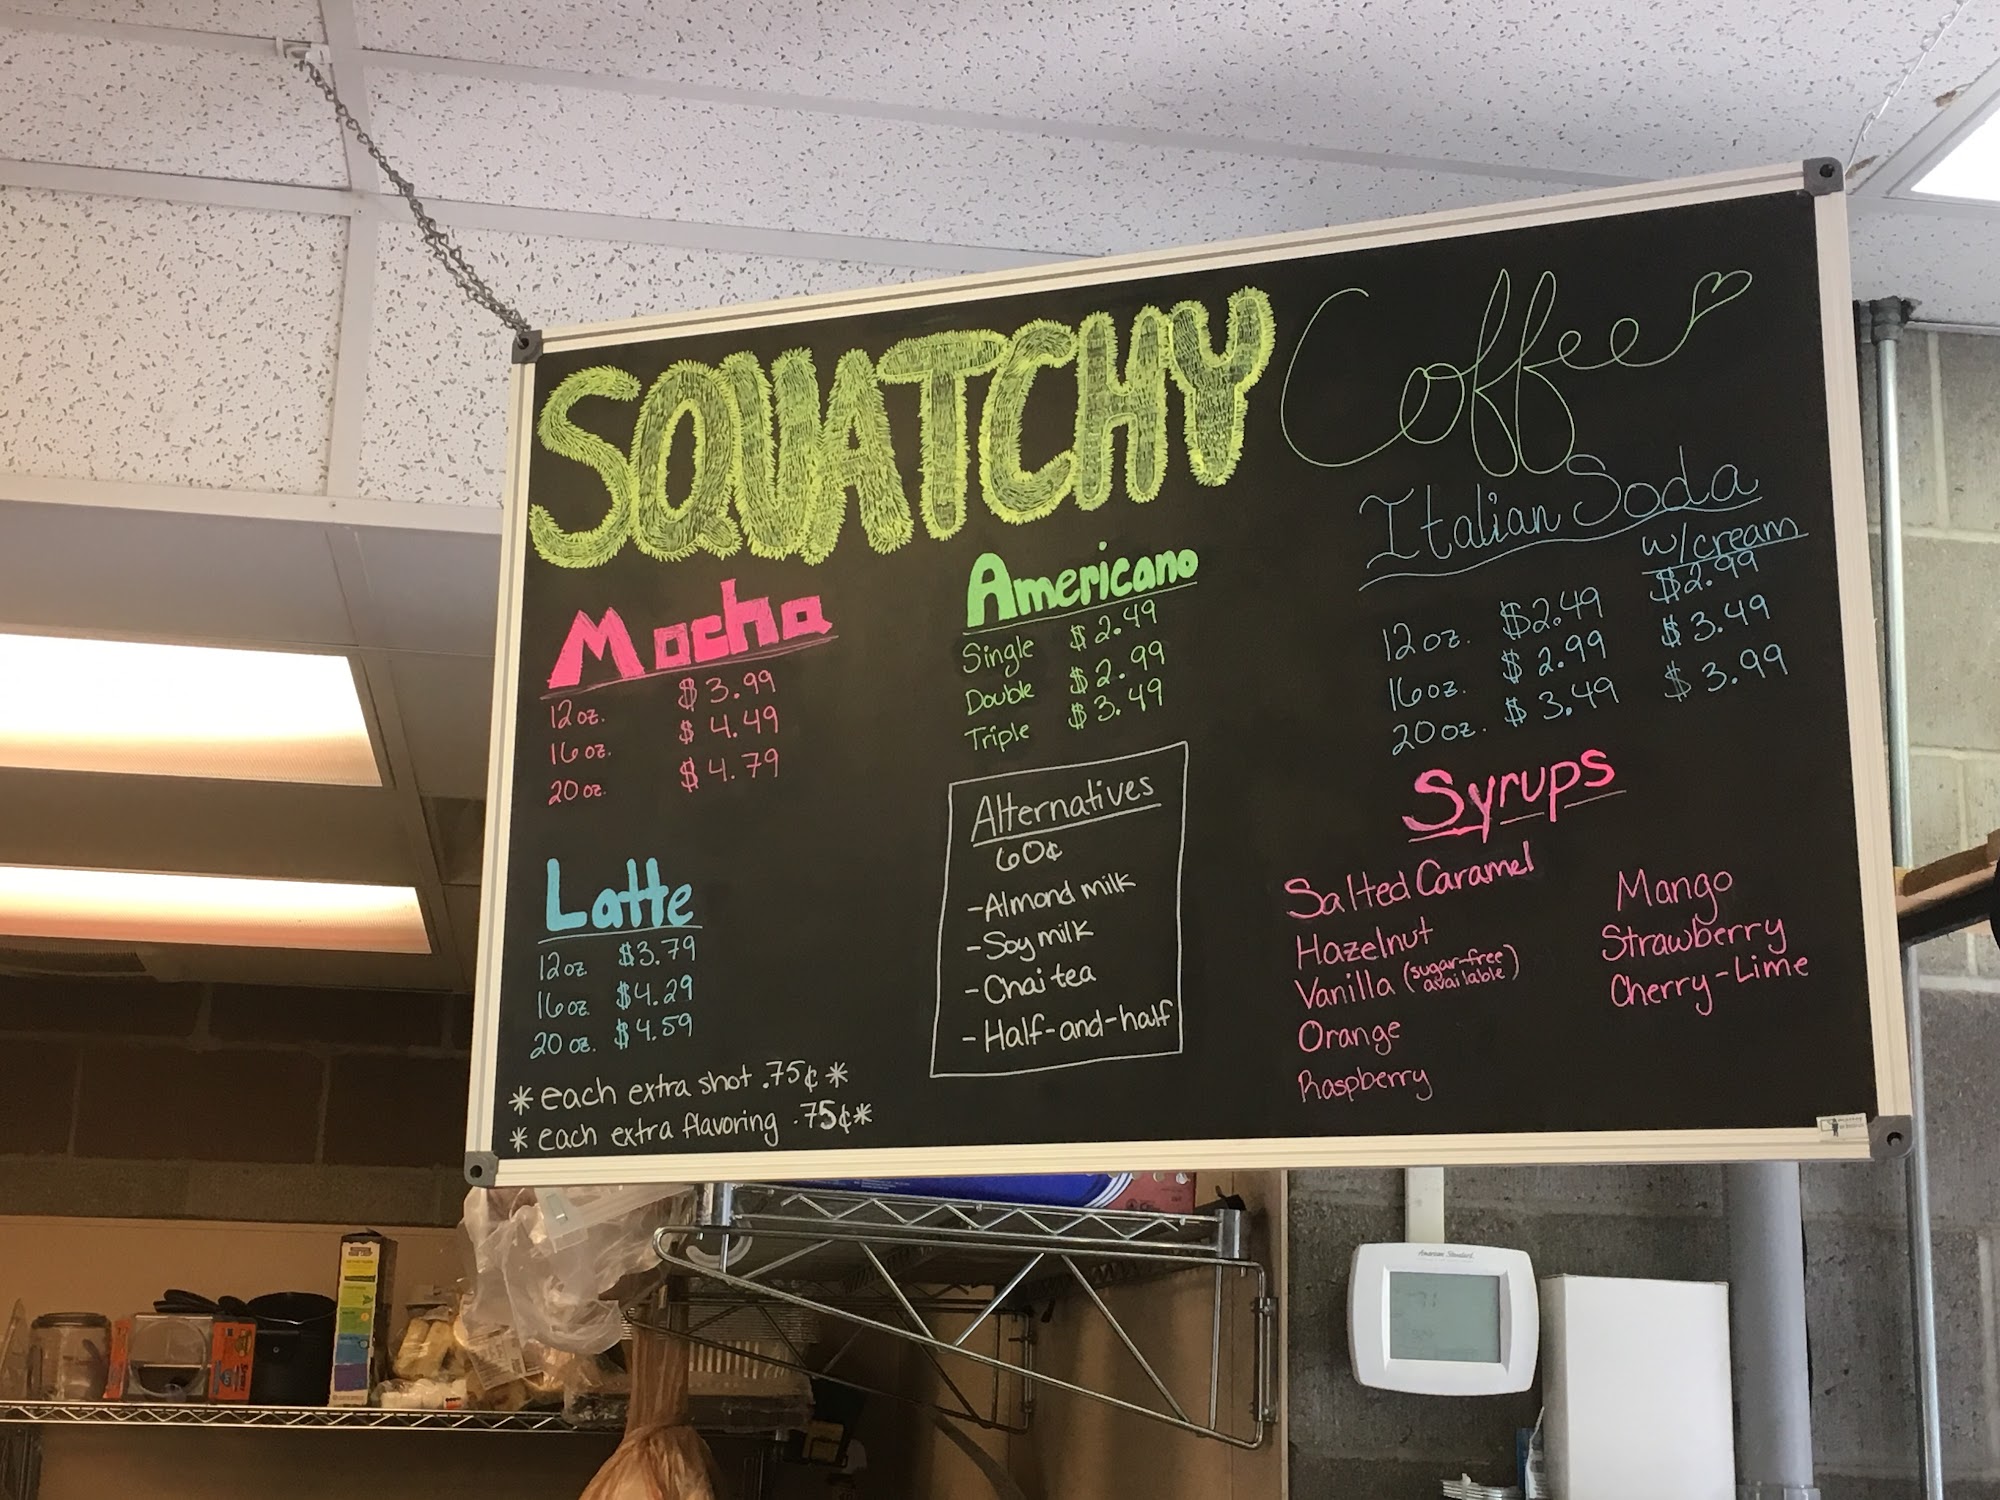 SQUATCHY Coffee
Mocha
12 oz. $3.99
16 oz. $4.49
20 oz. $4.79
Latte
12 oz $3.79
16 oz. $4.29
20 oz. $4.59
*each extra shot .75¢*
*each extra flavoring .75¢*
Americano
Single $2.49
Double $2.99
Triple $3.49
Alternatives
60¢
-Almond milk
-Soy milk
-Chai tea
-Half-and-half
Italian Soda
w/cream
12 oz. $2.49 $2.99
16 oz. $2.99 $3.49
20 oz. $3.49 $3.99
Syrups
Salted Caramel
Hazelnut
Vanilla (sugar-free available)
Orange
Raspberry
Mango
Strawberry
Cherry-Lime
American Standard